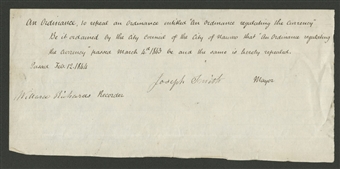 An Ordinance, to repeal an Ordinance entitled "An Ordinance regulating the Currency"
Be it ordained by the City Council of the City of Nauvoo that "An Ordinance regulating
the Currency" passed March 4th 1843 be and the same is hereby repealed.
Passed Feb. 12. 1844
Joseph Smith Mayor
Willard Richards Recorder